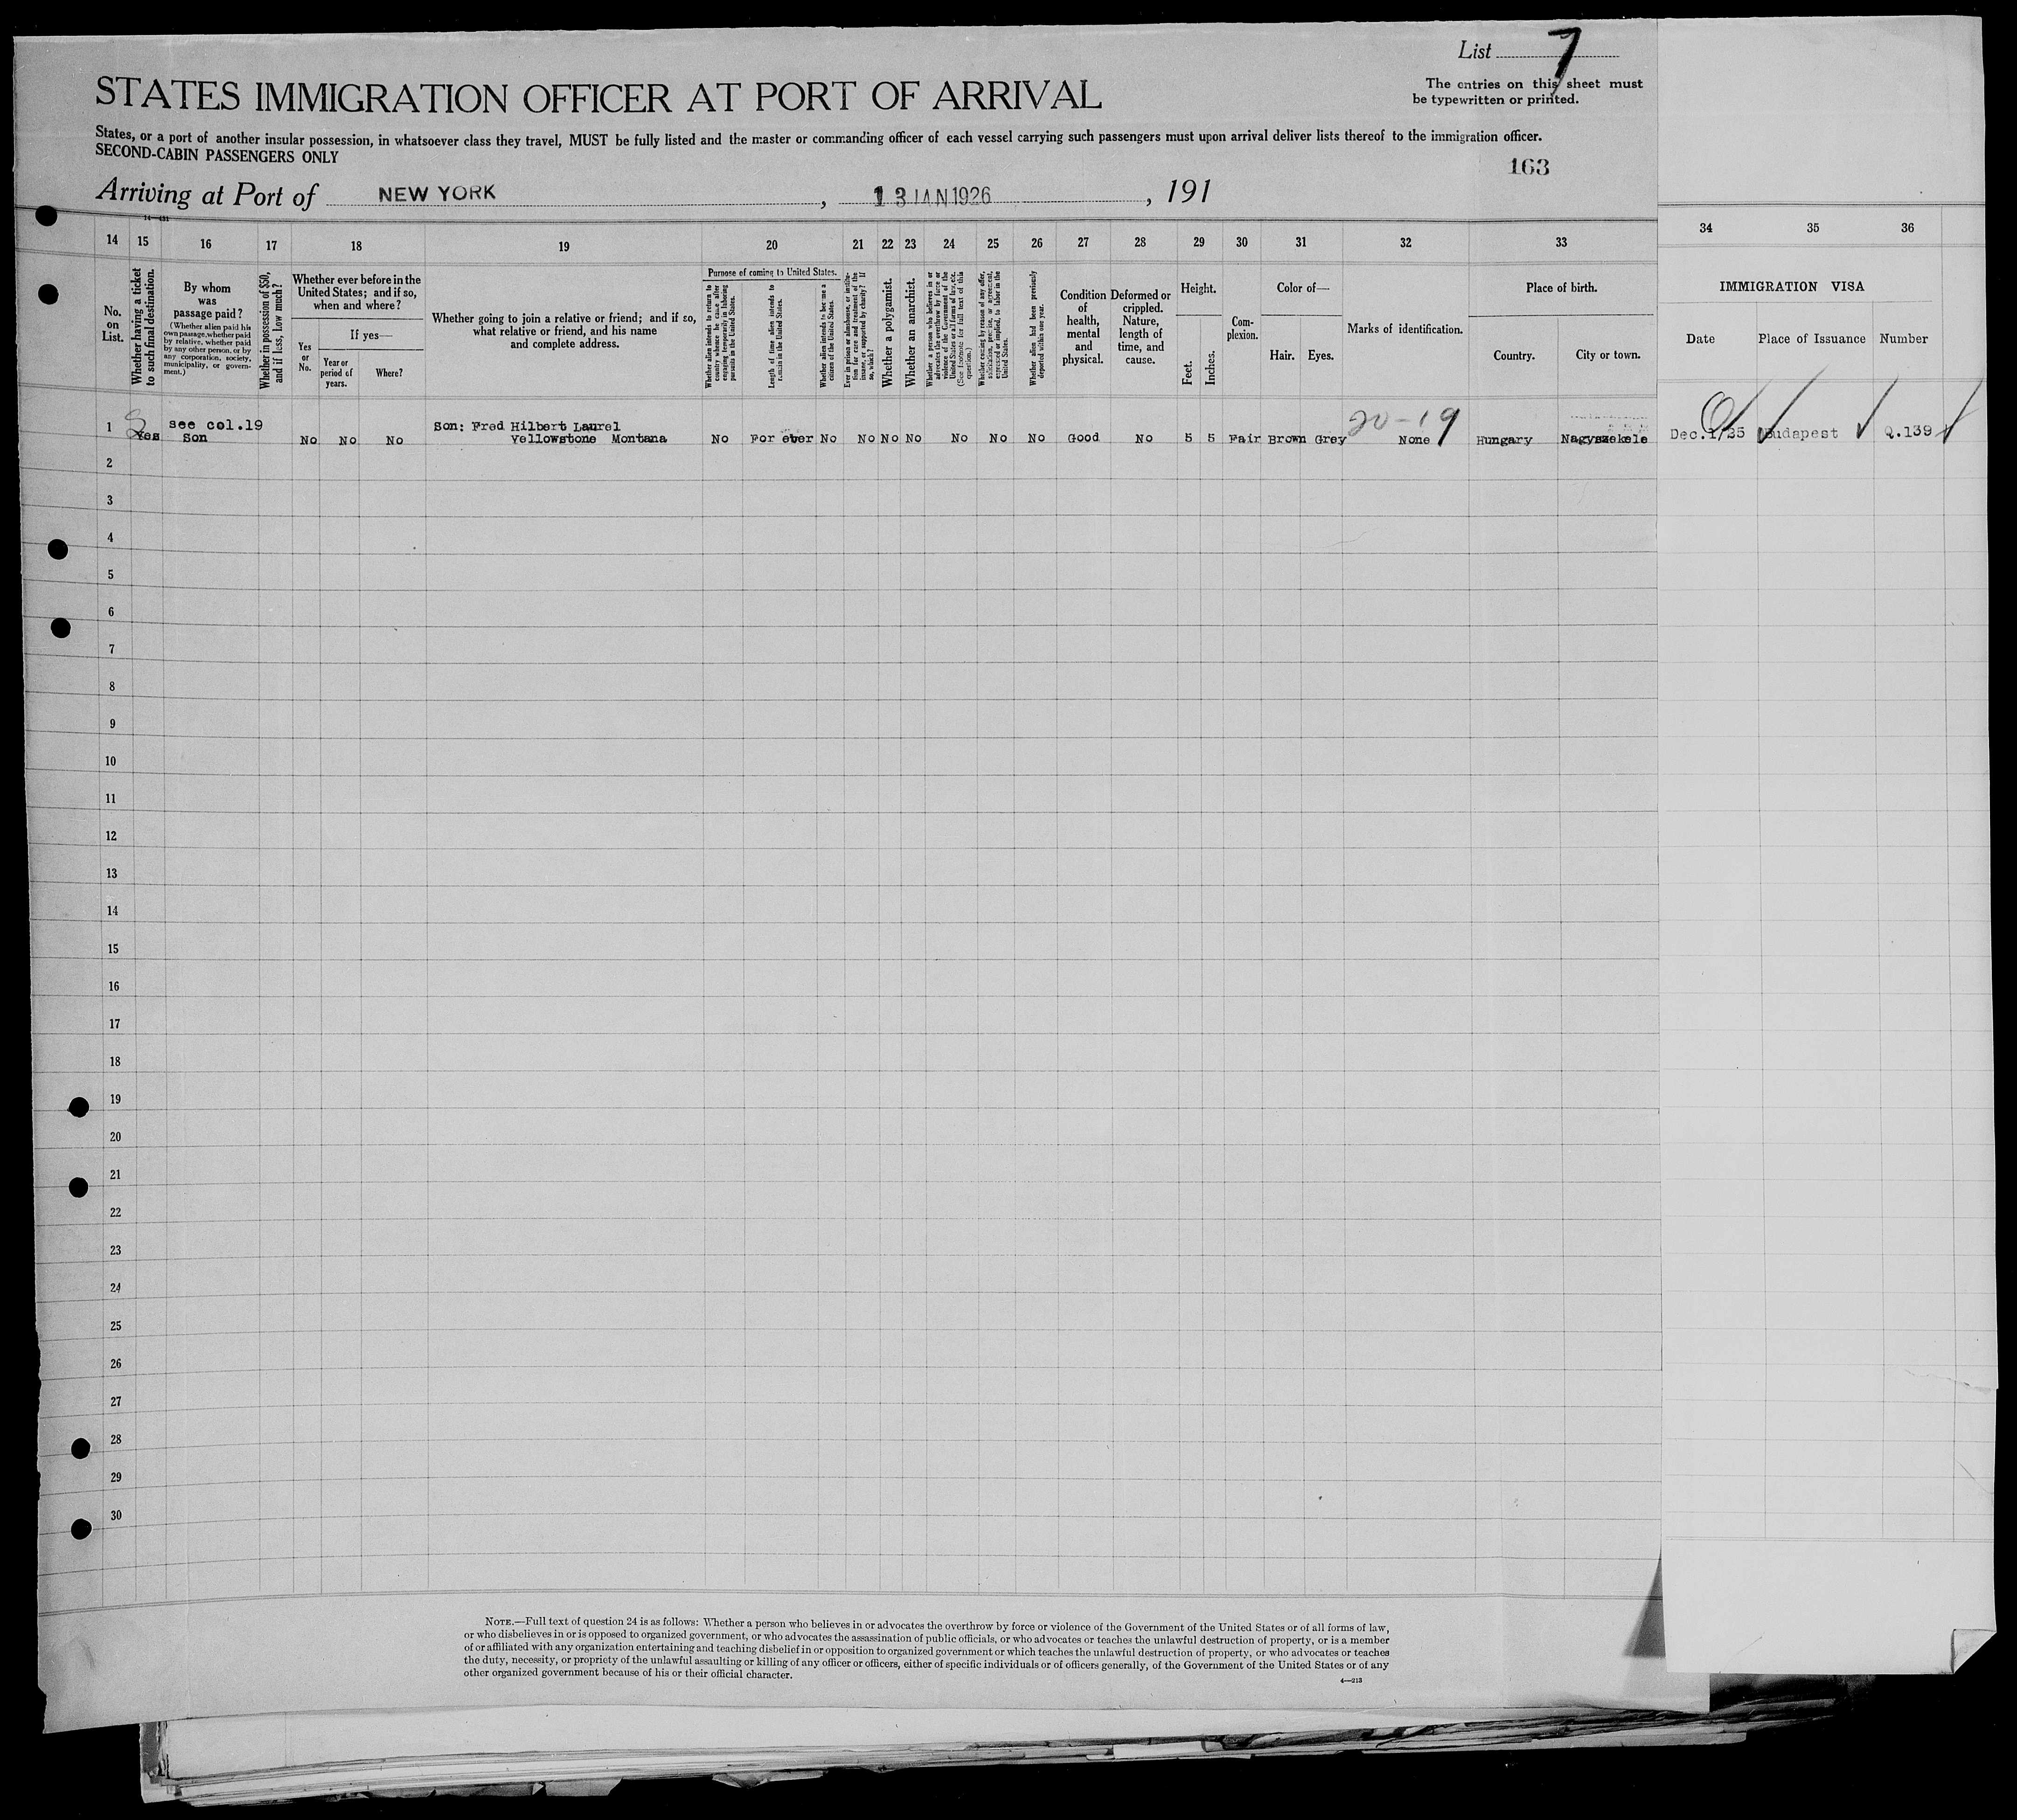 List 7
The entries on this sheet must
be typewritten or printed.
STATES IMMIGRATION OFFICER AT PORT OF ARRIVAL
States, or a port of another insular possession, in whatsoever class they travel, MUST be fully listed and the master or commanding officer of each vessel carrying such passengers must upon arrival deliver lists thereof to the immigration officer.
SECOND-CABIN PASSENGERS ONLY
163
Arriving at Port of NEW YORK, 13 JAN 1926, 191
14 15 16 17 18 19 20 21 22 23 24 25 26 27 28 29 30 31 32 33 34 35 36
No. on List.
Whether having a ticket to such final destination.
By whom was passage paid?
(Whether alien paid his own passage, whether paid by relative, whether paid by any other person, or by any corporation, society, municipality, or government.)
Whether in possession of $50, and if less, how much?
Whether ever before in the United States; and if so, when and where?
Yes or No.
If yes—
Year or period of years.
Where?
Whether going to join a relative or friend; and if so, what relative or friend, and his name and complete address.
Purpose of coming to United States.
Whether alien intends to return to country whence he came after engaging temporarily in laboring pursuits in the United States.
Length of time alien intends to remain in the United States.
Whether alien intends to become a citizen of the United States.
Ever in prison or almshouse, or institution for care and treatment of the insane, or supported by charity? If so, which?
Whether a polygamist.
Whether an anarchist.
Whether a person who believes in or advocates the overthrow by force or violence of the Government of the United States or all forms of law, etc. (See footnote for full text of this question.)
Whether coming by reason of any offer, solicitation, promise, or agreement, expressed or implied, to labor in the United States.
Whether alien had been previously deported within one year.
Condition of health, mental and physical.
Deformed or crippled. Nature, length of time, and cause.
Height.
Feet.
Inches.
Complexion.
Color of—
Hair.
Eyes.
Marks of identification.
Place of birth.
Country.
City or town.
IMMIGRATION VISA
Date
Place of Issuance
Number
20-19
see col.19 Son: Fred Hilbert Laurel
1 Yes Son No No No Yellowstone Montana No For ever No No No No No No No Good No 5 5 Fair Brown Grey None Hungary Nagyszekele Dec.1/25 Budapest Q.139
2
3
4
5
6
7
8
9
10
11
12
13
14
15
16
17
18
19
20
21
22
23
24
25
26
27
28
29
30
NOTE.—Full text of question 24 is as follows: Whether a person who believes in or advocates the overthrow by force or violence of the Government of the United States or of all forms of law,
or who disbelieves in or is opposed to organized government, or who advocates the assassination of public officials, or who advocates or teaches the unlawful destruction of property, or is a member
of or affiliated with any organization entertaining and teaching disbelief in or opposition to organized government or which teaches the unlawful destruction of property, or who advocates or teaches
the duty, necessity, or propriety of the unlawful assaulting or killing of any officer or officers, either of specific individuals or of officers generally, of the Government of the United States or of any
other organized government because of his or their official character.
4—213